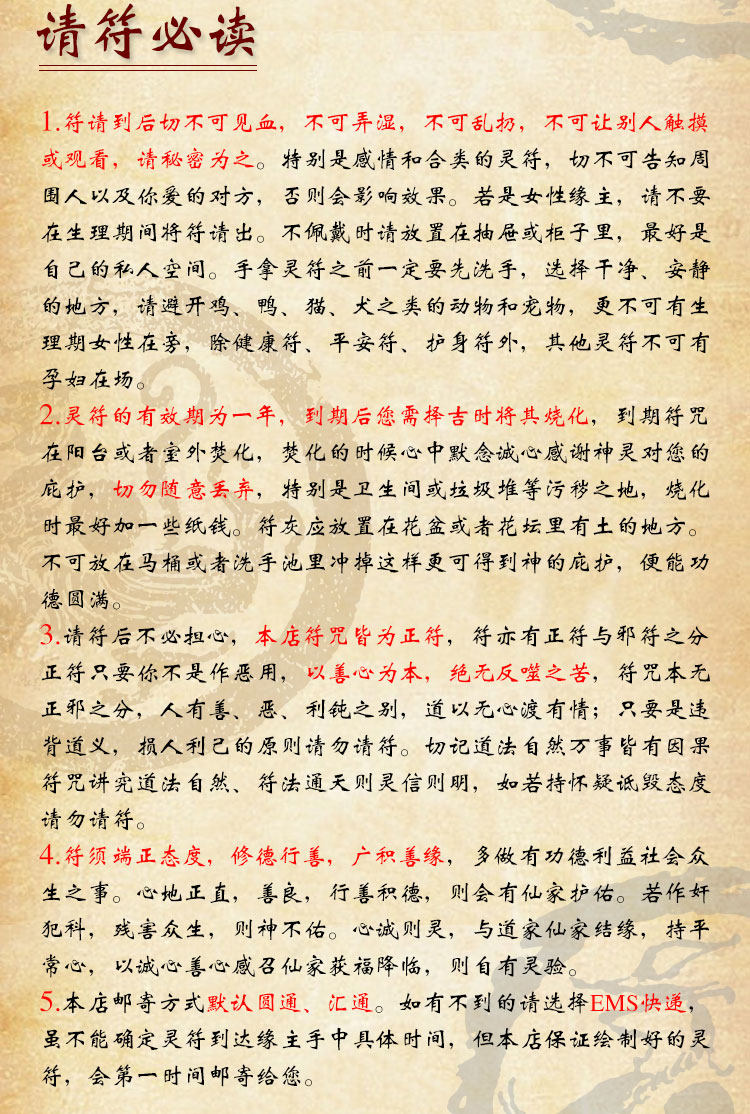 请符必读
1.符请到后切不可见血，不可弄湿，不可乱扔，不可让别人触摸
或观看，请秘密为之。特别是感情和合类的灵符，切不可告知周
围人以及你爱的对方，否则会影响效果。若是女性缘主，请不要
在生理期间将符请出。不佩戴时请放置在抽屉或柜子里，最好是
自己的私人空间。手拿灵符之前一定要先洗手，选择干净、安静
的地方，请避开鸡、鸭、猫、犬之类的动物和宠物，更不可有生
理期女性在旁，除健康符、平安符、护身符外，其他灵符不可有
孕妇在场。
2.灵符的有效期为一年，到期后您需择吉时将其烧化，到期符咒
在阳台或者室外焚化，焚化的时候心中默念诚心感谢神灵对您的
庇护，切勿随意丢弃，特别是卫生间或垃圾堆等污秽之地，烧化
时最好加一些纸钱。符灰应放置在花盆或者花坛里有土的地方。
不可放在马桶或者洗手池里冲掉这样更可得到神的庇护，便能功
德圆满。
3.请符后不必担心，本店符咒皆为正符，符亦有正符与邪符之分
正符只要你不是作恶用，以善心为本，绝无反噬之苦，符咒本无
正邪之分，人有善、恶、利钝之别，道以无心渡有情；只要是违
背道义，损人利己的原则请勿请符。切记道法自然万事皆有因果
符咒讲究道法自然、符法通天则灵信则明，如若持怀疑诋毁态度
请勿请符。
4.符须端正态度，修德行善，广积善缘，多做有功德利益社会众
生之事。心地正直，善良，行善积德，则会有仙家护佑。若作奸
犯科，残害众生，则神不佑。心诚则灵，与道家仙家结缘，持平
常心，以诚心善心感召仙家获福降临，则自有灵验。
5.本店邮寄方式默认圆通、汇通。如有不到的请选择EMS快递，
虽不能确定灵符到达缘主手中具体时间，但本店保证绘制好的灵
符，会第一时间邮寄给您。